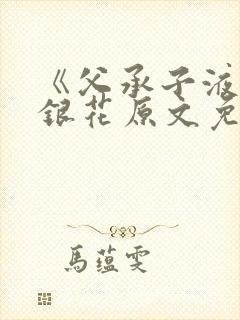 《父承子液
銀花原文免
馬蕴雯